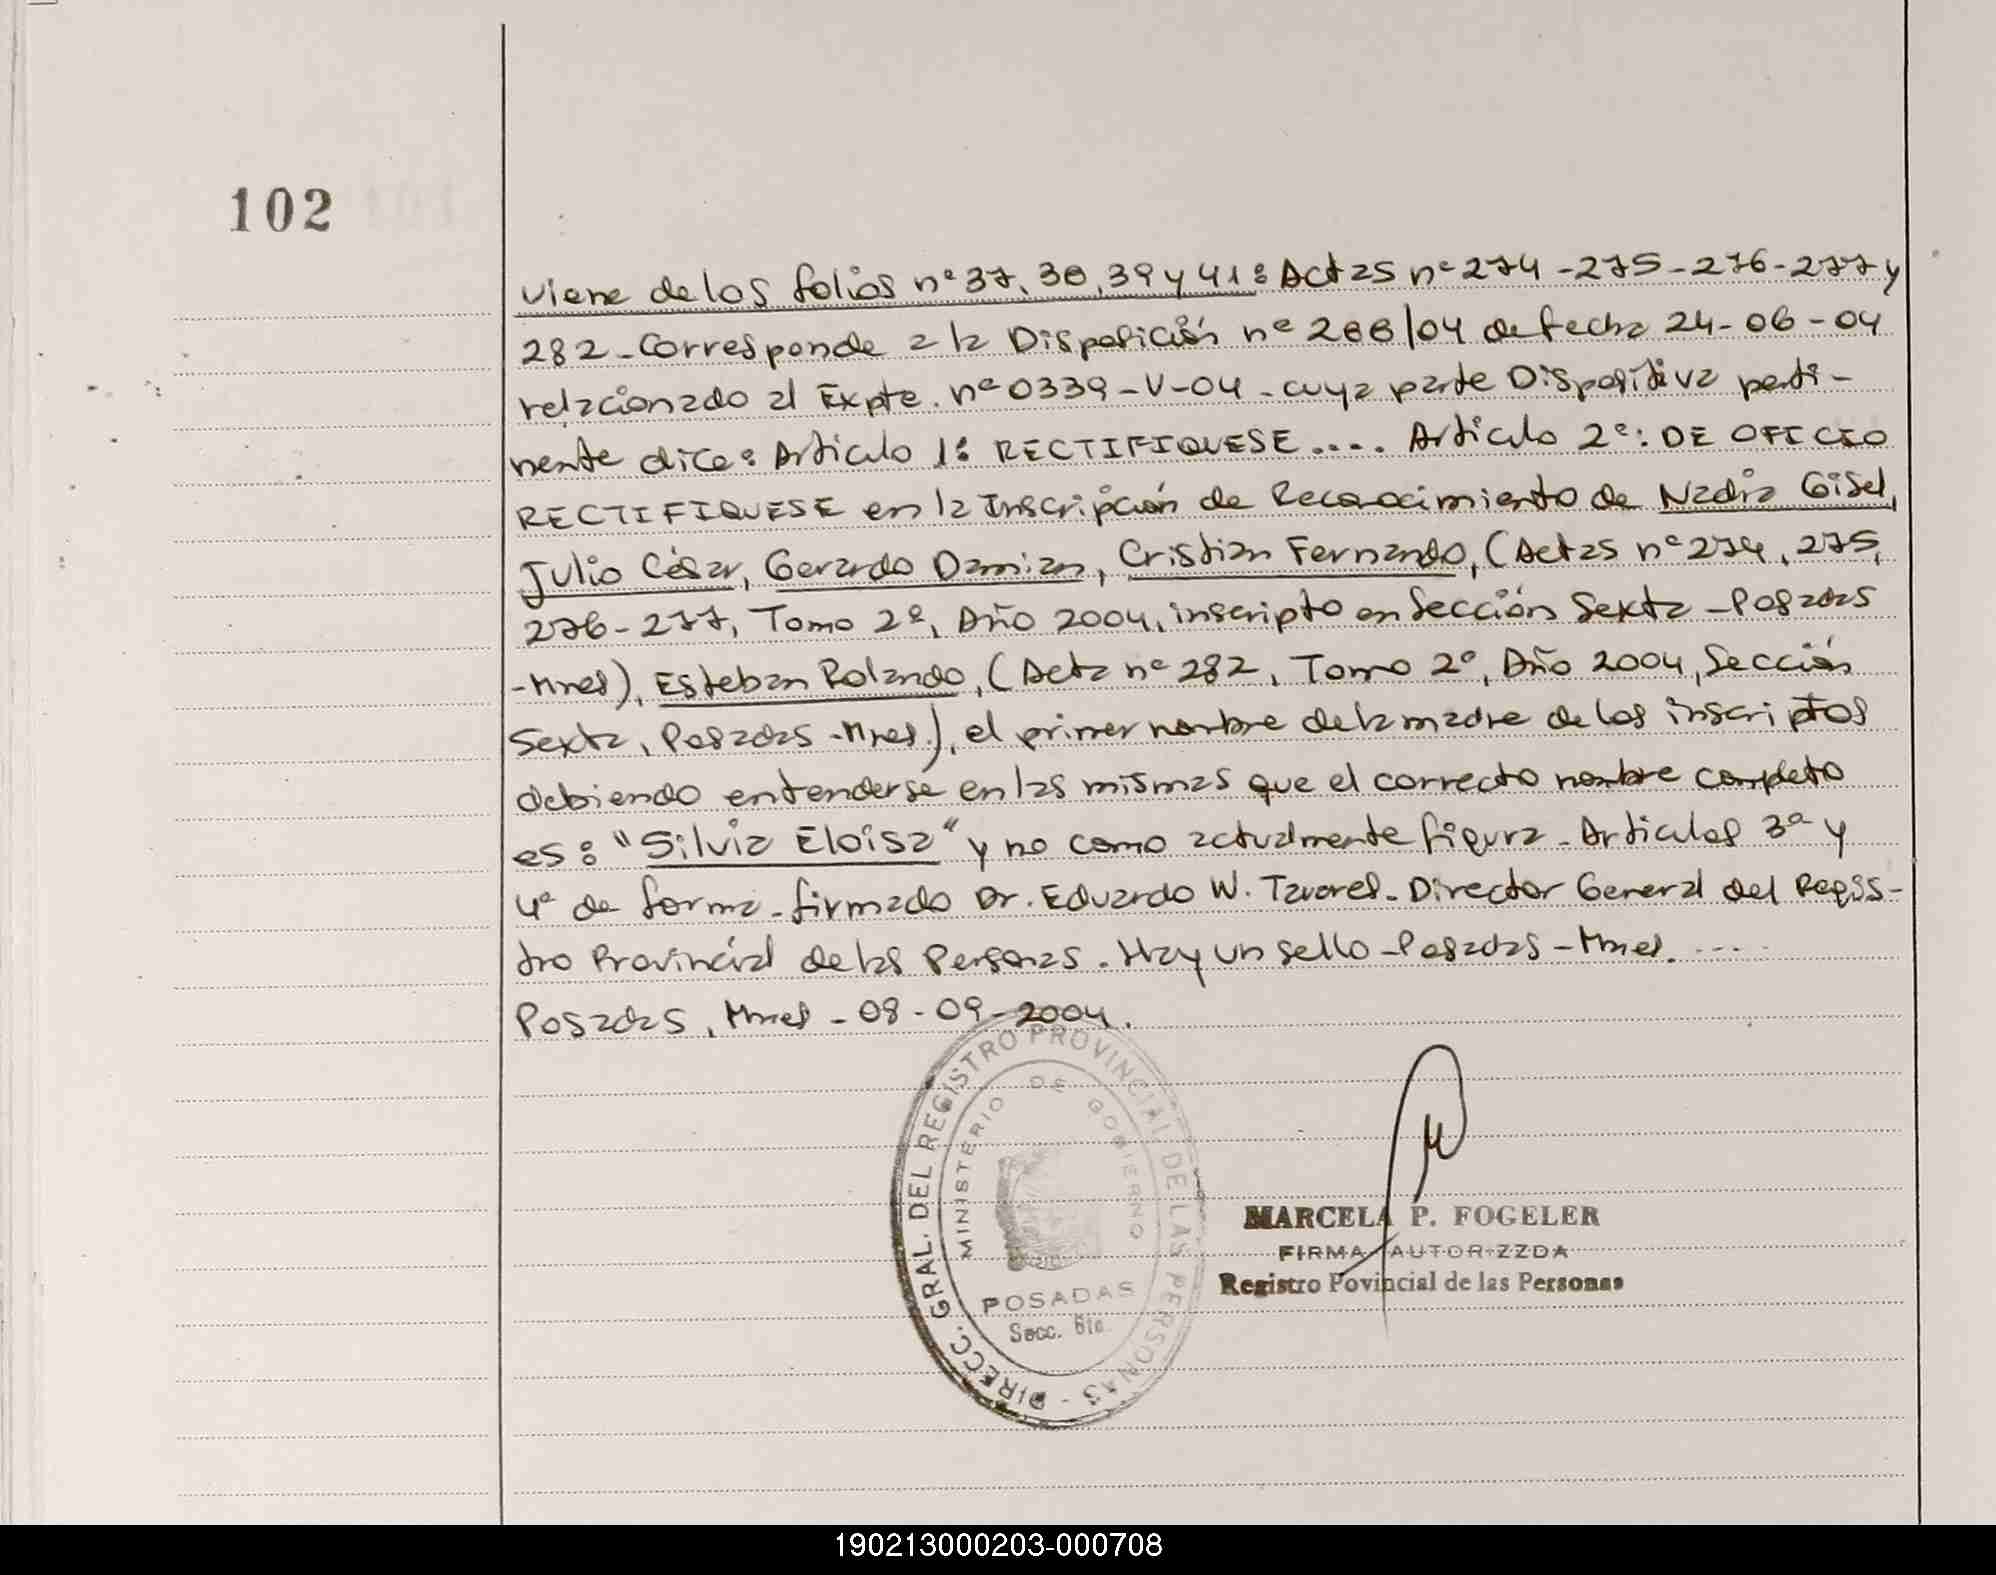 102
viene de los folios nº 37, 38, 39 y 41: Actas nº 274 - 275 - 276 - 277 y
282 - Corresponde a la Disposición nº 288/04 de fecha 24-06-04
relacionado al Expte. nº 0339-V-04 - cuya parte Dispositiva perti-
nente dice: Articulo 1: RECTIFIQUESE .... Articulo 2º: DE OFICIO
RECTIFIQUESE en la Inscripción de Reconocimiento de Nadia Gisel,
Julio César, Gerardo Damian, Cristian Fernando, (Actas nº 274, 275,
276 - 277, Tomo 2º, Año 2004, inscripto en Sección Sexta - Posadas
- Mnes), Esteban Rolando, (Acta nº 282, Tomo 2º, Año 2004, Sección
Sexta, Posadas - Mnes.), el primer nombre de la madre de los inscriptos
debiendo entenderse en las mismas que el correcto nombre completo
es: "Silvia Eloisa" y no como actualmente figura - Articulos 3º y
4º de forma - firmado Dr. Eduardo W. Tavares - Director General del Regis-
tro Provincial de las Personas. Hay un sello - Posadas - Mnes. ....
Posadas, Mnes - 08 - 09 - 2004.
DIRECC. GRAL. DEL REGISTRO PROVINCIAL DE LAS PERSONAS -
MINISTERIO DE GOBIERNO
POSADAS
Secc. 6ta.
MARCELA P. FOGELER
FIRMA AUTORIZZDA
Registro Povincial de las Personas
190213000203-000708